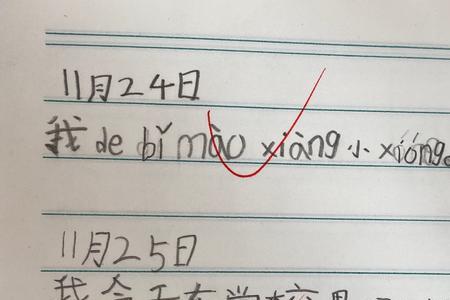 11月24日
我de bǐ mào xiàng小xióng。
11月25日
我今天在学校里